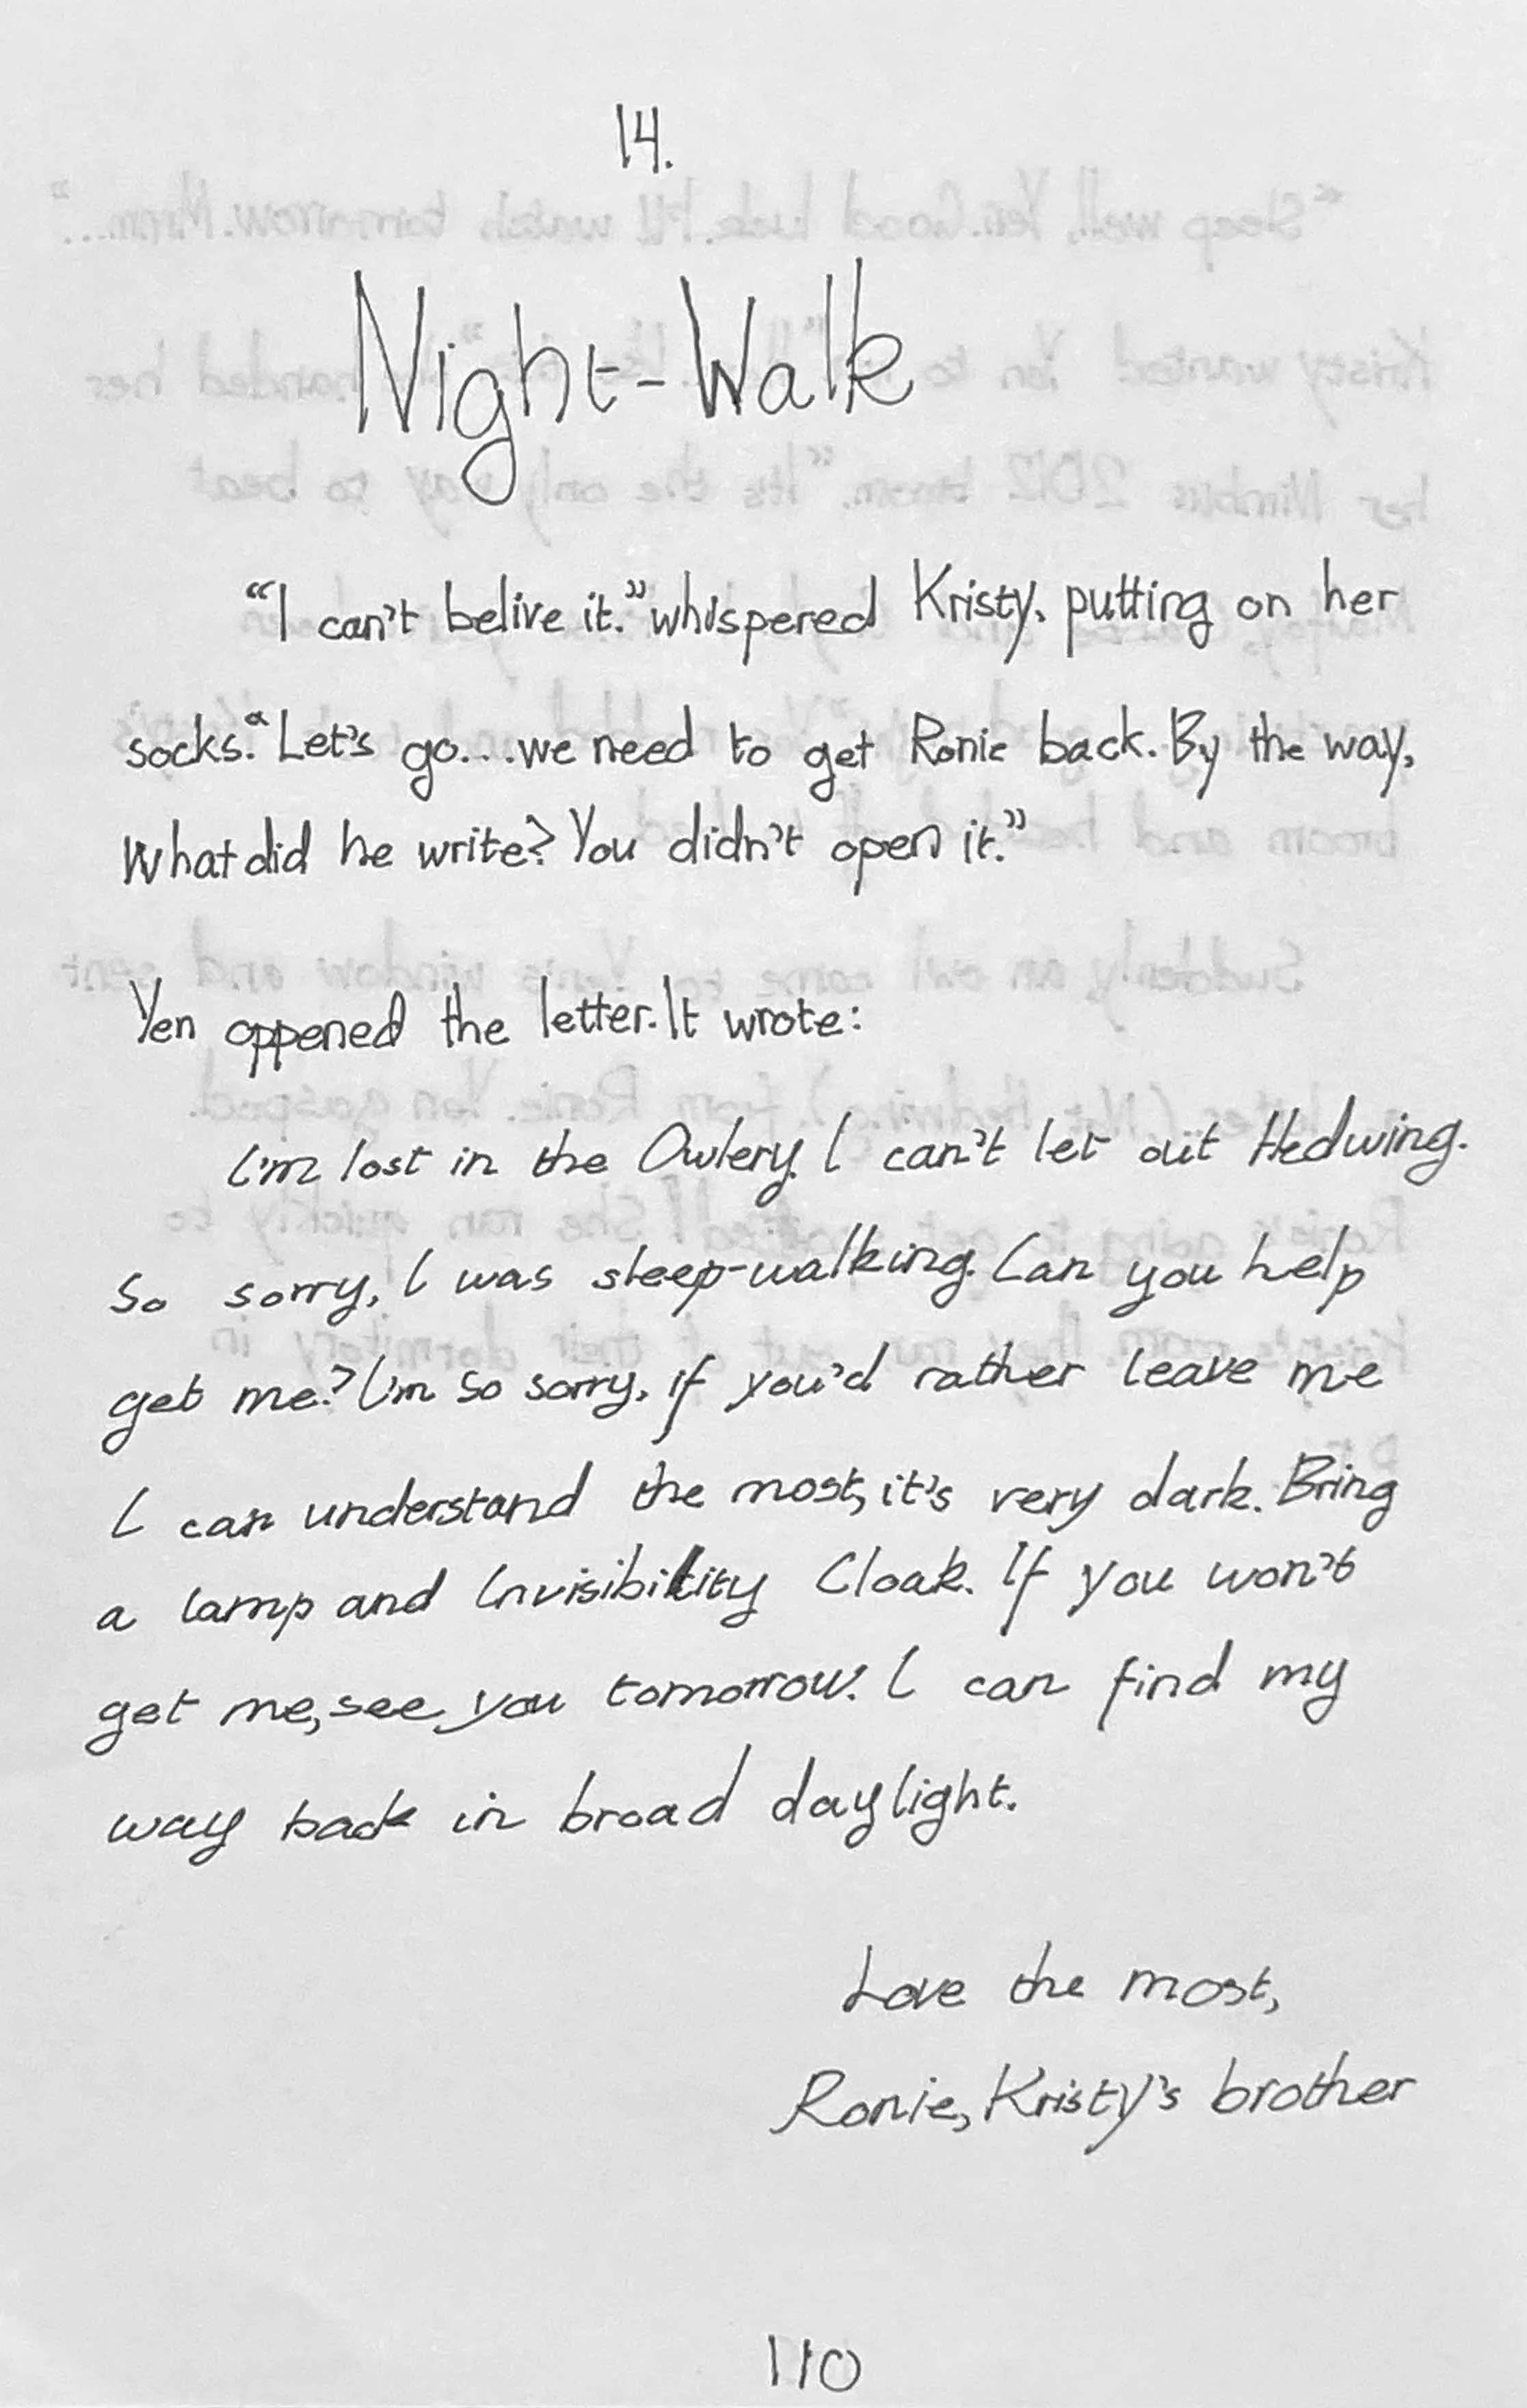 14.
Night-Walk
“I can't belive it.” whispered Kristy, putting on her
socks. “Let's go...we need to get Ronie back. By the way,
What did he write? You didn't open it.”
Yen oppened the letter. It wrote:
I'm lost in the Owlery. I can't let out Hedwing.
So sorry, I was sleep-walking. Can you help
get me? I'm so sorry, if you'd rather leave me
I can understand the most, it's very dark. Bring
a lamp and Invisibility Cloak. If you won't
get me, see you tomorrow. I can find my
way back in broad daylight.
Love the most,
Ronie, Kristy's brother
110